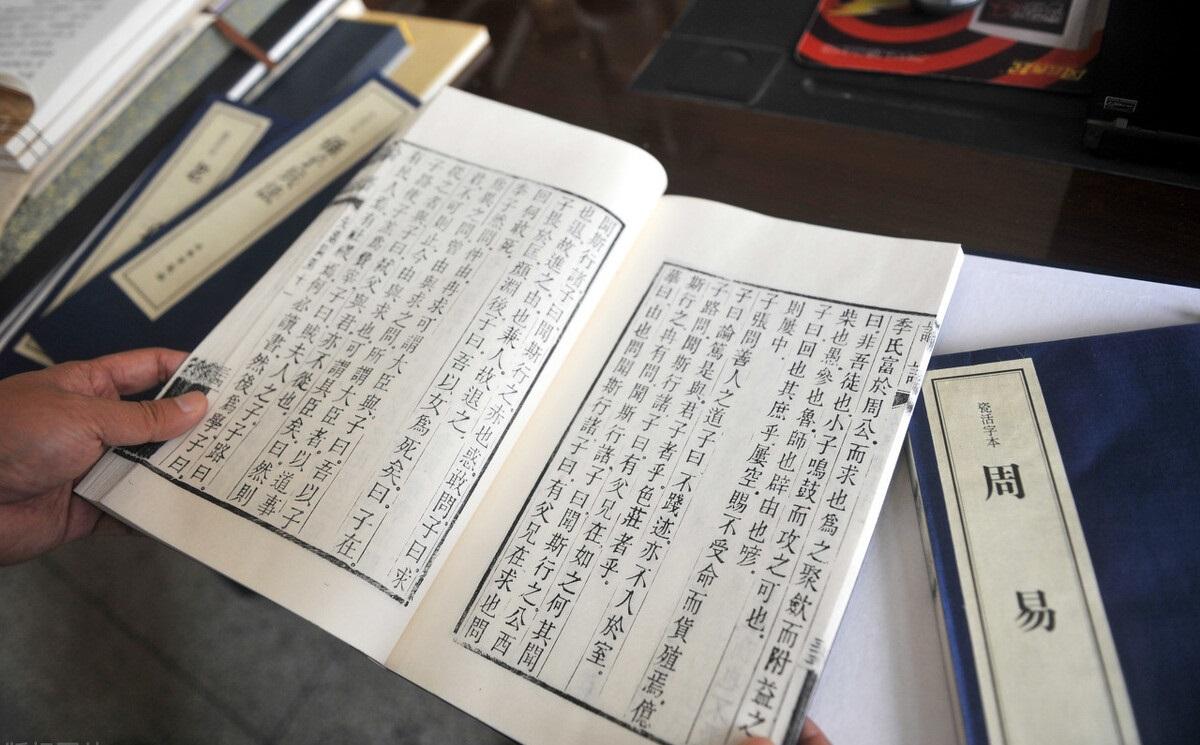 季氏富於周公。而求也爲之聚斂而附益之
曰。非吾徒也小子鳴鼓而攻之可也。
柴也愚。參也魯。師也辟。由也喭。
子曰。回也其庶乎。屢空。賜不受命而貨殖焉。億
則屢中
子張問善人之道。子曰不踐迹。亦不入於室。
子曰論篤是與。君子者乎。色莊者乎。
子路問聞斯行諸。子曰有父兄在。如之何其聞
斯行之。冉有問聞斯行諸。子曰聞斯行之公西
華曰。由也問聞斯行諸。子曰有父兄在求也問
聞斯行諸。子曰。聞斯行之。赤也惑。敢問。子曰求
也退。故進之。由也兼人。故退之。
子畏於匡。顏淵後子曰。吾以女爲死矣。曰。子在。
回何敢死。
季子然問。仲由冉求可謂大臣與。子曰。吾以子
爲異之問。曾由與求之問。所謂大臣者。以道事
君。不可則止。今由與求也。可謂具臣矣。曰然則
從之者與。子曰。弑父與君。亦不從也。
子路使子羔爲費宰。子曰。賊夫人之子。子路曰。
有民人焉。有社稷焉。何必讀書。然後爲學。子曰。
瓷活字本
周易